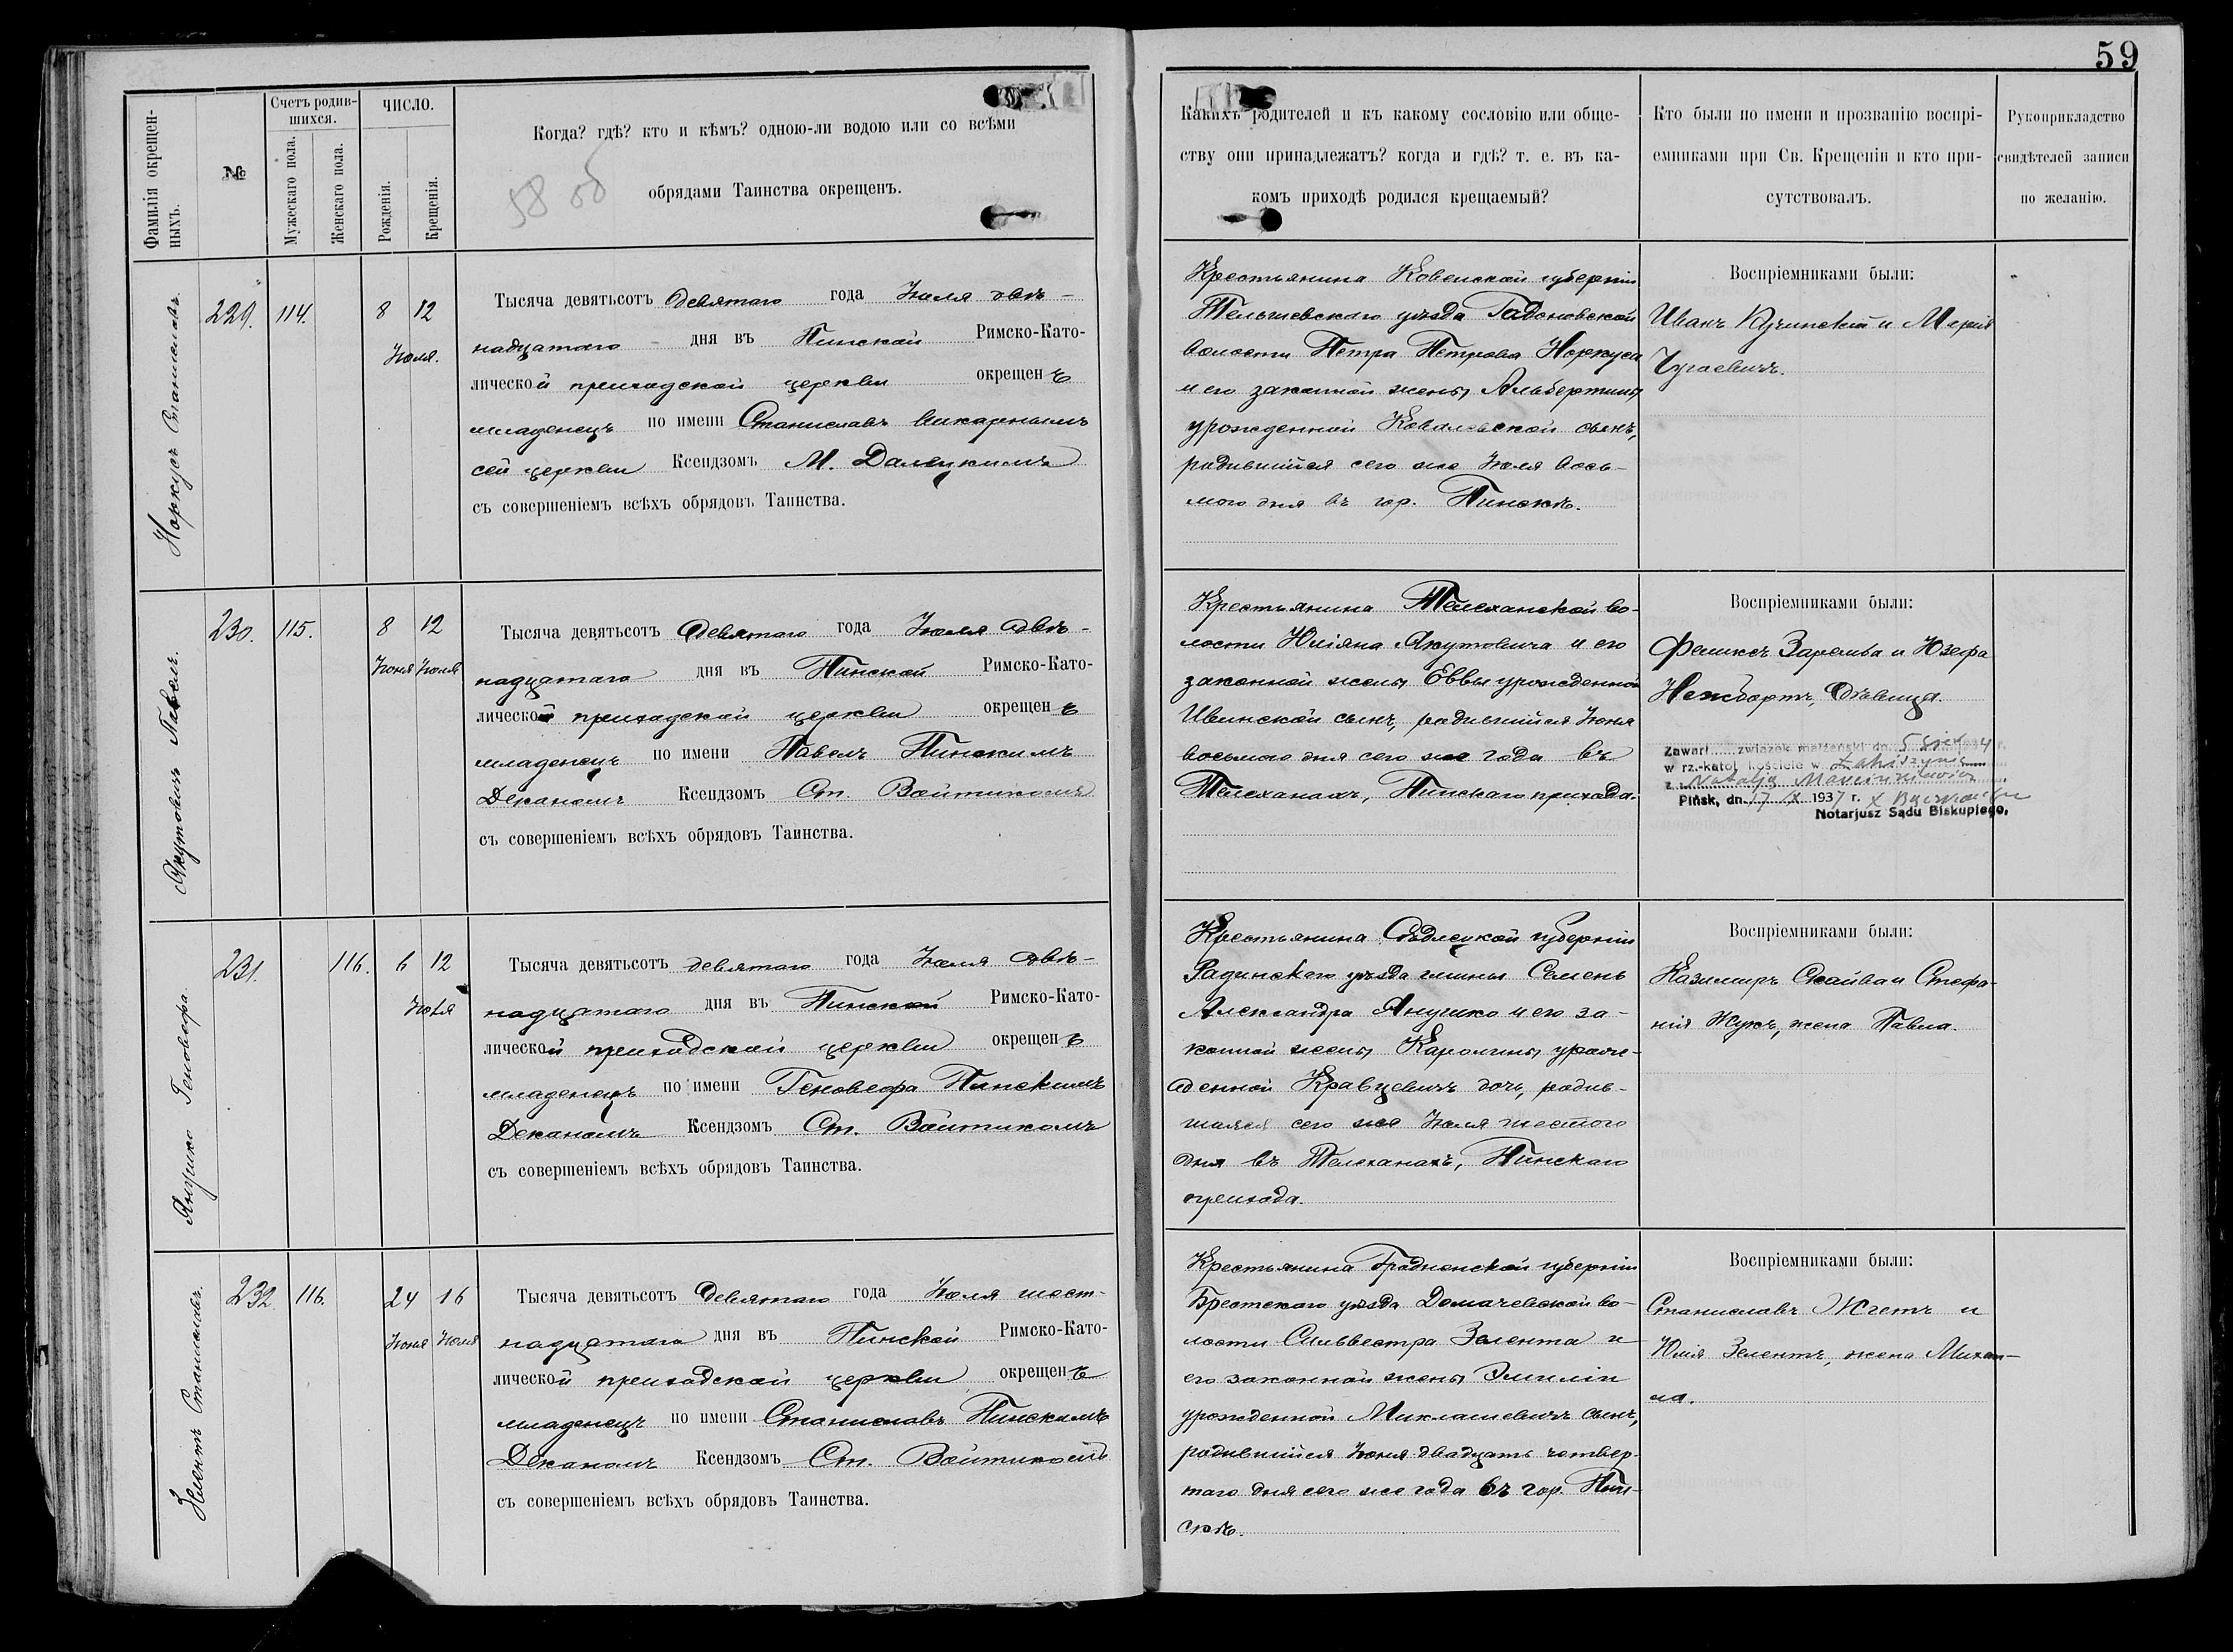 59
Фамилія окрещен-
ныхъ.
№
Счетъ родив-
шихся.
Мужескаго пола.
Женскаго пола.
ЧИСЛО.
Рожденія.
Крещенія.
Когда? гдѣ? кто и кѣмъ? одною-ли водою или со всѣми
обрядами Таинства окрещенъ.
58 об
Какихъ родителей и къ какому сословію или обще-
ству они принадлежатъ? когда и гдѣ? т. е. въ ка-
комъ приходѣ родился крещаемый?
Кто были по имени и прозванію воспрі-
емниками при Св. Крещеніи и кто при-
сутствовалъ.
Рукоприкладство
свидѣтелей записи
по желанію.
Норкусъ Станиславъ.
229. 114. 8 12
Іюля.
Тысяча девятьсотъ девятаго года Іюля двѣ-
надцатаго дня въ Пинской Римско-Като-
лической приходской церкви окрещенъ
младенецъ по имени Станиславъ Викарнымъ
сей церкви Ксендзомъ М. Далецкимъ
съ совершеніемъ всѣхъ обрядовъ Таинства.
Крестьянина Ковенской губерніи
Тельшевскаго уѣзда Гадоновской
волости Петра Петрова Норкуса
и его законной жены Альбертины
урожденной Ковалевской сынъ,
родившійся сего же Іюля вось-
мого дня въ гор. Пинскѣ.
Воспріемниками были:
Иванъ Кучинскій и Марія
Чугаевичъ.
Якутовичъ Павелъ.
230. 115. 8 12
Іюня Іюля
Тысяча девятьсотъ Девятаго года Іюля двѣ-
надцатаго дня въ Пинской Римско-Като-
лической приходской церкви окрещенъ
младенецъ по имени Павелъ Пинскимъ
Деканомъ Ксендзомъ Ст. Войтикомъ
съ совершеніемъ всѣхъ обрядовъ Таинства.
Крестьянина Телеханской во-
лости Юліяна Якутовича и его
законной жены Еввы урожденной
Ивинской сынъ, родившійся Іюня
восьмого дня сего же года въ
Телеханахъ, Пинскаго прихода.
Воспріемниками были:
Феликсъ Заремба и Юзефа
Нейбортъ, дѣвица.
Zawarł związek małżeński dn. 5
w rz.-katol. kościele w Łahiszynie
z Natalją
Pińsk, dn. 17 X 1937 r. X
Notarjusz Sądu Biskupiego.
Янушко Геновефа.
231. 116. 6 12
Іюля
Тысяча девятьсотъ девятаго года Іюля двѣ-
надцатаго дня въ Пинской Римско-Като-
лической приходской церкви окрещенъ
младенецъ по имени Геновефа Пинскимъ
Деканомъ Ксендзомъ Ст. Войтикомъ
съ совершеніемъ всѣхъ обрядовъ Таинства.
Крестьянина Сѣдлецкой губерніи
Радинскаго уѣзда гмины Семень
Александра Янушко и его за-
конной жены Каролины урож-
денной Кравцевичъ дочь, родив-
шаяся сего же Іюля шестого
дня въ Телеханахъ, Пинскаго
прихода.
Воспріемниками были:
Казимиръ и Стефа-
нія Жукъ, жена Павла.
Зелентъ Станиславъ.
232 116. 24 16
Іюня Іюля
Тысяча девятьсотъ Девятаго года Іюля шест-
надцатаго дня въ Пинской Римско-Като-
лической приходской церкви окрещенъ
младенецъ по имени Станиславъ Пинскимъ
Деканомъ Ксендзомъ Ст. Войтикомъ
съ совершеніемъ всѣхъ обрядовъ Таинства.
Крестьянина Гродненской губерніи
Брестскаго уѣзда Домачевской во-
лости Сильвестра Зелента и
его законной жены Эмиліи
урожденной Миклашевичъ сынъ,
родившійся Іюня двадцать четвер-
таго дня сего же года въ гор. Пин-
скѣ.
Воспріемниками были:
Станиславъ и
Юлія Зелентъ, жена Михаи-
ла.